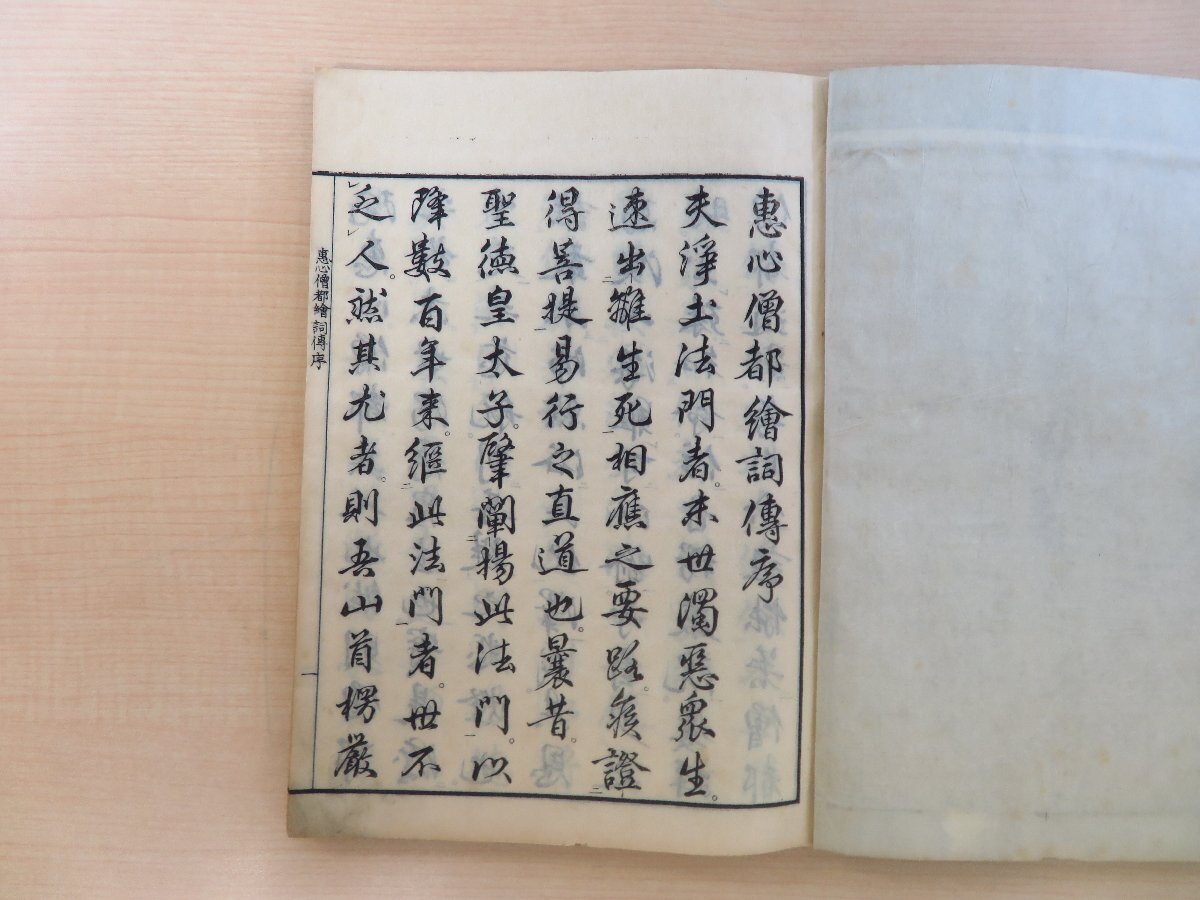 惠心僧都繪詞傳序
夫淨土法門者。末世濁惡衆生。
速出離生死相應之要路。疾證
得菩提易行之直道也。曩昔。
聖德皇太子。肇闡揚此法門。以
降數百年来。繼此法門者。世不
乏人。然其尤者。則吾山首楞嚴
惠心僧都繪詞傳序
一